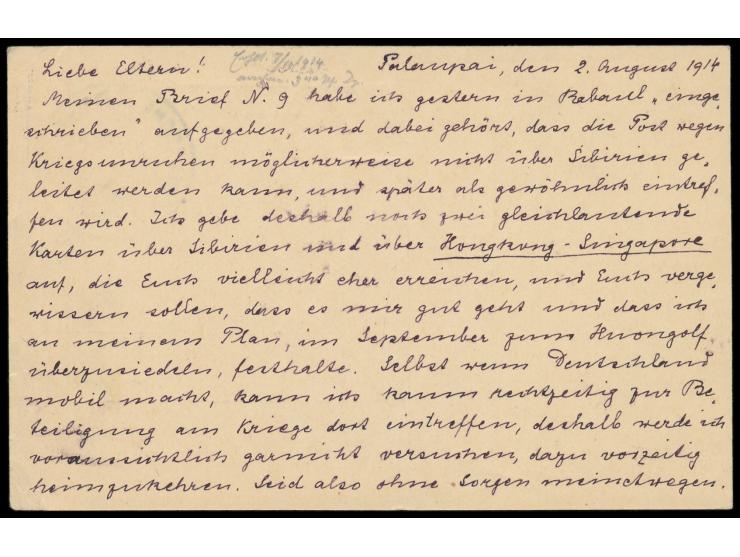 Liebe Eltern! Palaupai, den 2. August 1914
Meinen Brief N. 9 habe ich gestern in Rabaul „einge-
schrieben" aufgegeben, und dabei gehört, dass die Post wegen
Kriegsunruhen möglicherweise nicht über Sibirien ge-
leitet werden kann, und später als gewöhnlich eintref-
fen wird. Ich gebe deshalb noch zwei gleichlautende
Karten über Sibirien und über Hongkong-Singapore
auf, die Euch vielleicht eher erreichen, und Euch verge-
wissern sollen, dass es mir gut geht und dass ich
an meinem Plan, im September zum Huongolf
überzusiedeln, festhalte. Selbst wenn Deutschland
mobil macht, kann ich kaum rechtzeitig zur Be-
teiligung am Kriege dort eintreffen, deshalb werde ich
voraussichtlich garnicht versuchen, dazu vorzeitig
heimzukehren. Seid also ohne Sorgen meinetwegen.